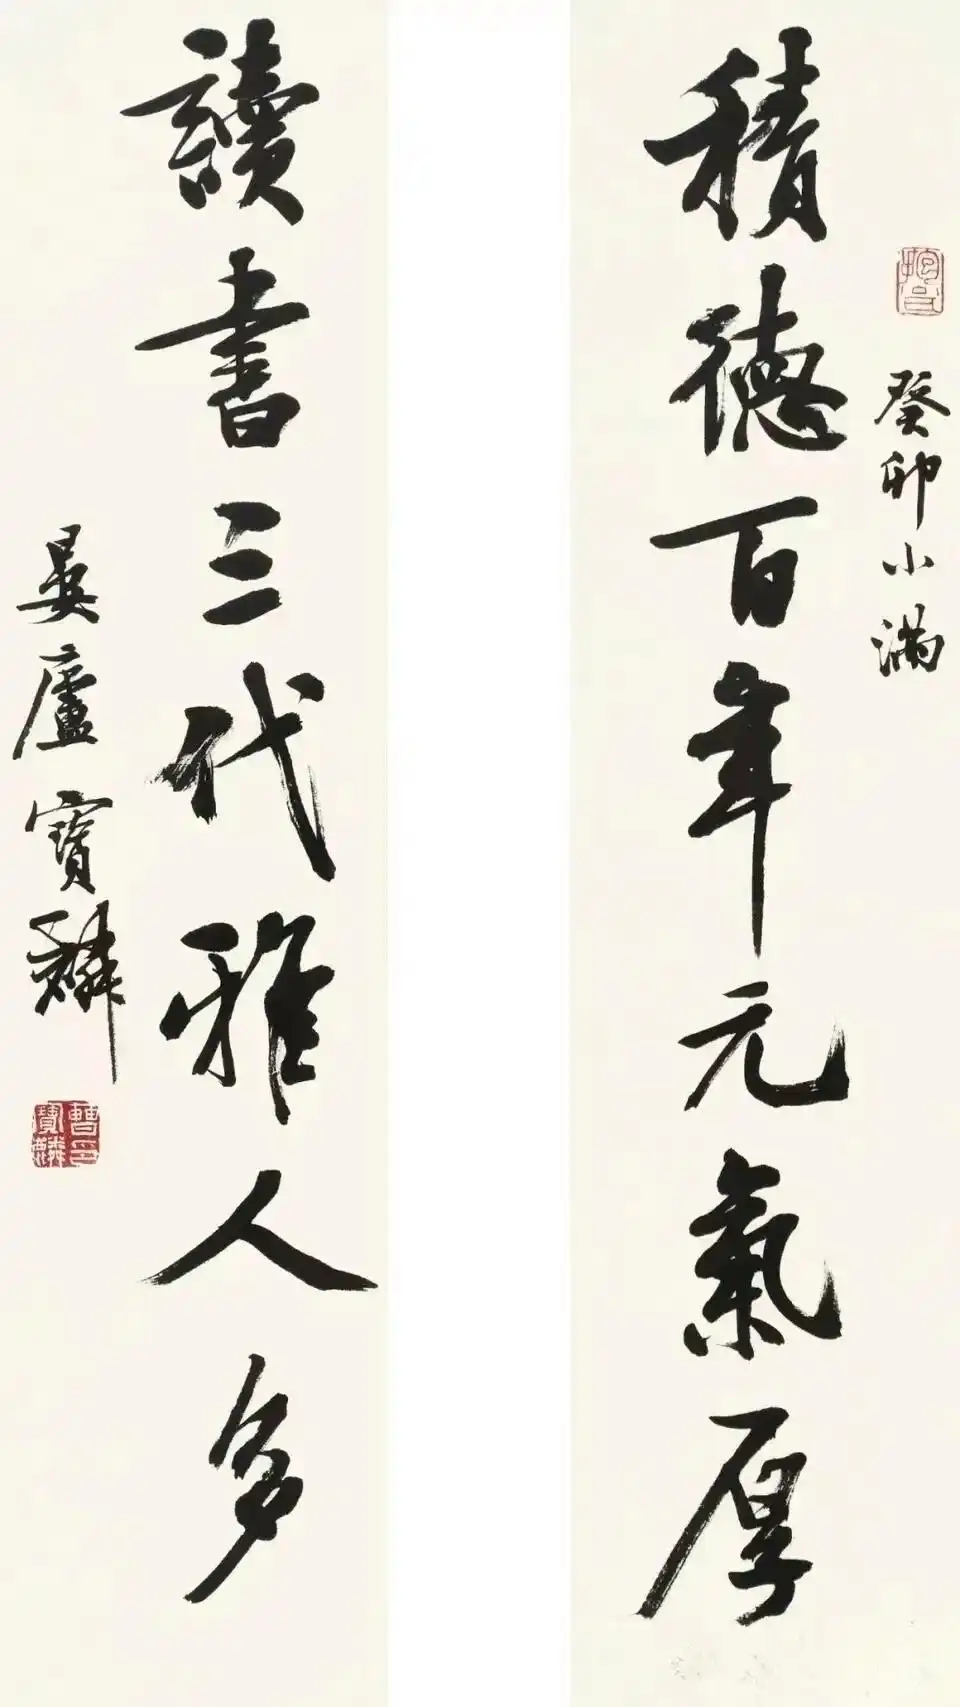 積德百年元氣厚
癸卯小滿
讀書三代雅人多
晏廬寶麟
曹寶麟印